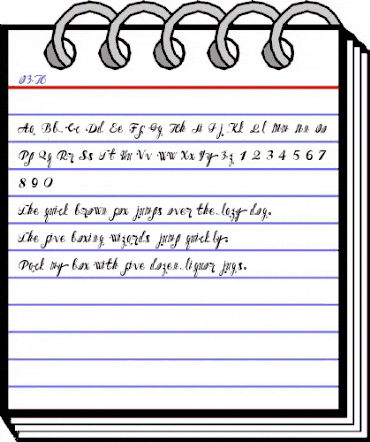 Aa Bb Cc Dd Ee Ff Gg Hh Ii Jj Kk Ll Mm Nn Oo
Pp Qq Rr Ss Tt Uu Vv Ww Xx Yy Zz 1 2 3 4 5 6 7
8 9 0
The quick brown fox jumps over the lazy dog.
The five boxing wizards jump quickly.
Pack my box with five dozen liquor jugs.